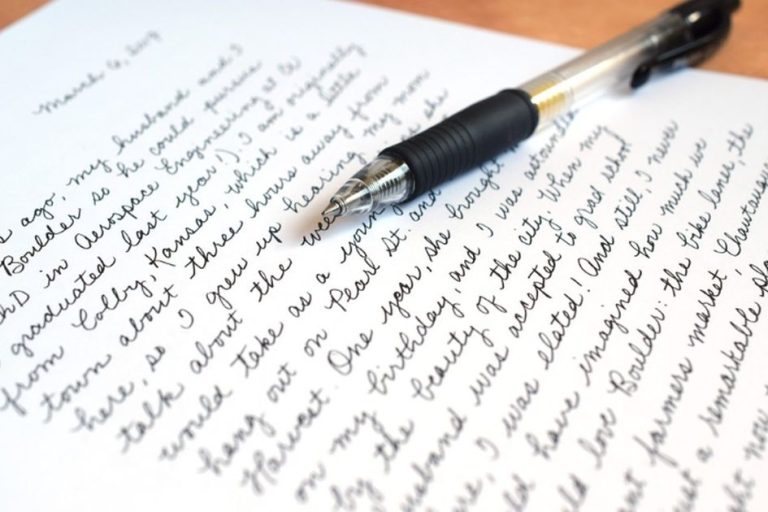 March 6,
ago, my husband and I
Boulder so he could pursue
PhD in Aerospace Engineering at
graduated last year!). I am originally
from Colby, Kansas, which is a little
town about three hours away from
here, so I grew up hearing my mom
talk about the
would take as a
hang out on Pearl St. and
Harvest. One year, she brought
on my birthday, and I was
by the beauty of the city. When my
husband was accepted to grad school
I was elated! And still, I never
have imagined how much we
love Boulder: the bike lanes, the
farmers market, Chautauqua
a remarkable
now